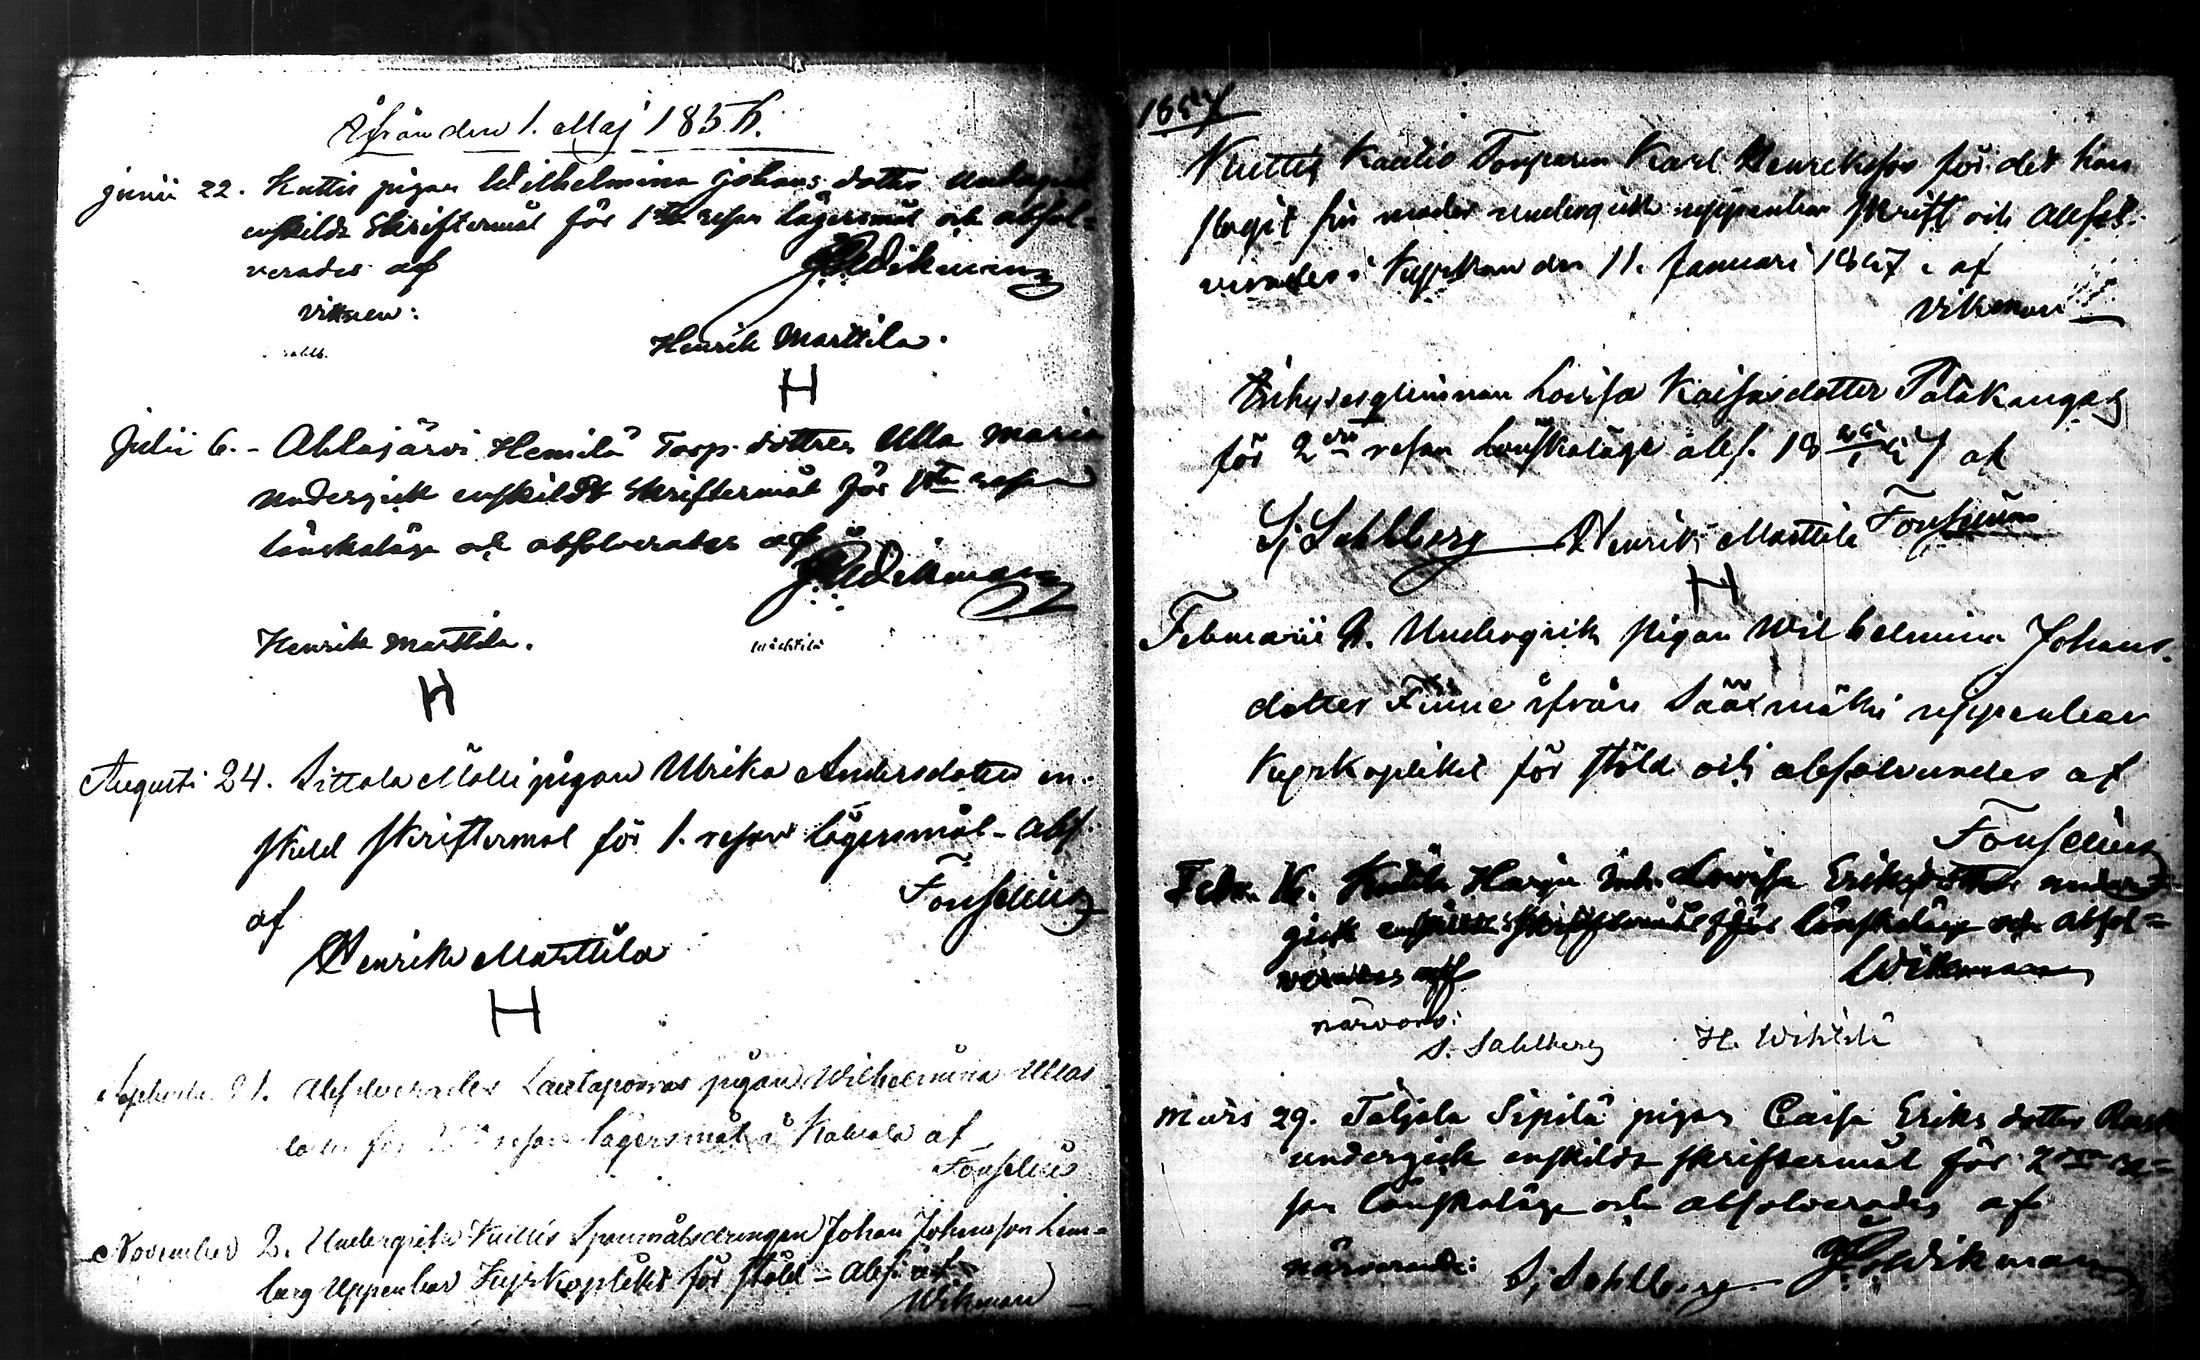 Ifrån den 1. Maj 1856.
Junii 22. Kuttis pigan Wilhelmina Johans dotter undergick
enskildt Skriftermål för 1sta resan lägersmål och absol-
verades af Wikman
vittnen:
Henrik Marttila.
H
Julii 6. - Ahlajärvi Hemilä Torp. dottren Ulla Maria
undergick enskildt Skriftermål för 1sta resan
lönskaläge och absolverades af
Wikman
Henrik Marttila.
H
Augusti 24. Sittala Mälli pigan Ulrika Andersdotter en-
skild skriftermål för 1. resan lägersmål - abs.
af Fonselius
Henrik Marttila
H
Absolverades Lautaporras pigan Wilhelmina Ullas
för resan lägersmål af
Fonselius
November 2. Undergick Kuttis Spanmålsdrengen Johan Johansson Lem-
berg Uppenbar Kyrkoplikt för stöld - Abs. af
Wikman
1857
Kuttis Kaatio Torparen Karl Henriksson för det han
slagit sin moder undergick uppenbar skrift och Absol-
verades i Kyrkan den 11. Januari 1857 af
Vikman
Inhysesqvinnan Lovisa Kaisasdotter Patakangas
för 2dra resan Lönskaläge abs. 18 57 af
Sj Sahlberg Henrik Marttila Fonselius
H
Februarii Undergick pigan Wilhelmina Johans-
dotter Finne ifrån Sääxmäki uppenbar
Kyrkoplikt för stöld och absolverades af
Fonselius
Febr. 16. Harju Inh. Lovisa Eriksdotter under-
gick enskildt skriftermål för lönskaläge och absol-
verades af Wikman
närvaro:
S. Sahlberg H. Wihtilä
Mars 29. Taljala Sipilä pigan Caisa Eriks dotter
undergick enskildt skriftermål för 2dra re-
san lönskaläge och absolverades af
närvarande: Sj Sahlberg. Wikman